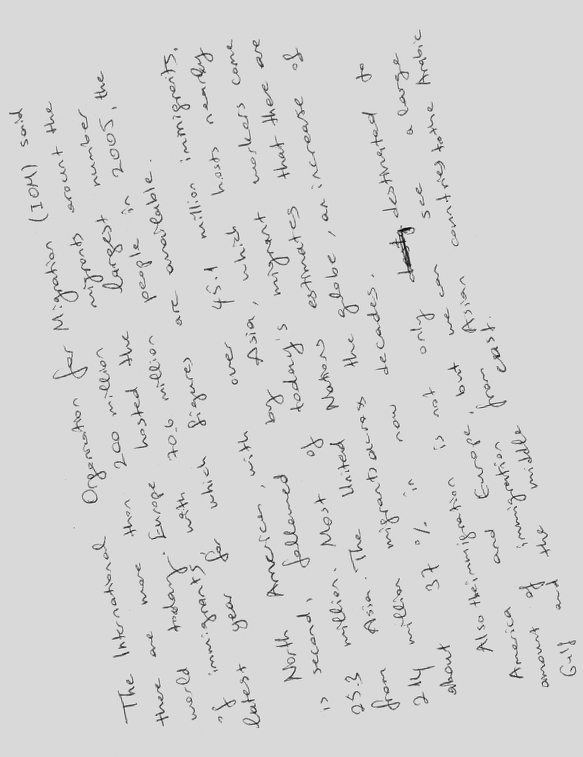 The International Organization for Migration (IOM) said
there are more than 200 million migrants arount the
world today. Europe hosted the largest number
of immigrants with 70.6 million people in 2005, the
latest year for which figures are available.
North American, with over 45.1 million immigrants,
is second, followed by Asia, which hosts nearly
25.3 million. Most of today's migrant workers come
from Asia. The United Nations estimates that there are
214 million migrants across the globe, an increase of
about 37 % in now decades.
Also their immigration is not only destinated to
America and Europe, but we can see a large
amount of immigration from Asian countries to the Arabic
Gulf and the middle east.